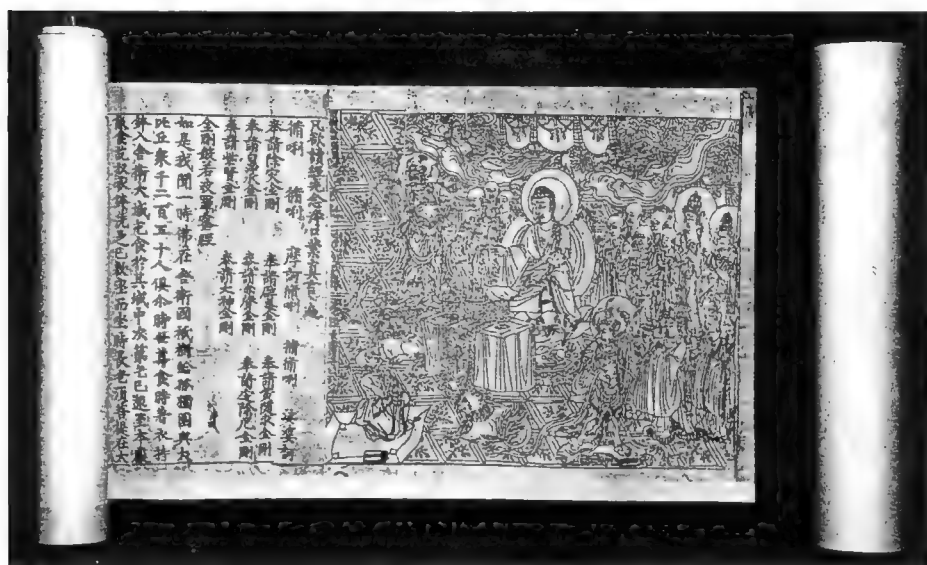 凡欲讀經先念淨口業真言一遍
脩唎 脩唎 摩訶脩唎 脩脩唎 娑婆訶
奉請除灾金剛 奉請辟毒金剛 奉請黃随求金剛
奉請白淨水金剛 奉請赤聲金剛 奉請定除厄金剛
奉請紫賢金剛 奉請大神金剛
金剛般若波羅蜜經
如是我聞一時佛在舍衛國祇樹給孤獨園與大
比丘衆千二百五十人俱尒時世尊食時著衣持
鉢入舍衛大城乞食於其城中次第乞已還至本處
飯食訖收衣鉢洗足已敷座而坐時長老須菩提在大